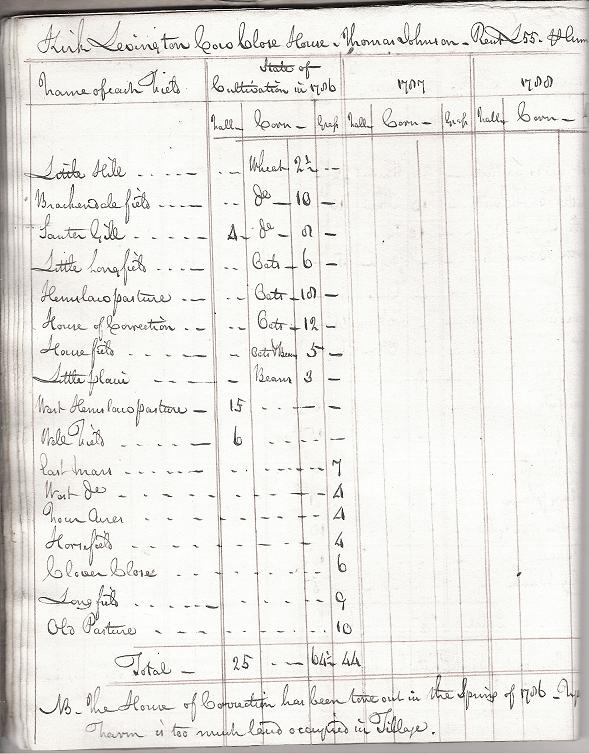 Kirk Levington Cow Close House - Thomas Johnson - Rent £55.
Name of each Field State of Cultivation in 1786 1787 1788
Fall Corn Grass Fall Corn Grass Fall Corn
Little Hill Wheat 2½
Brackendale field do 10
Sauter Gill 4 do 8
Little Longfield Oats 6
Hemslaw pasture Oats 18
House of Correction Oats 12
House field Oats & Beans 5
Little plain Beans 3
West Hemslaw pasture 15
Nele Field 6
East Mars 7
West do 4
Four Acres 4
Horsefield 4
Clover Close 6
Longfield 9
Old Pasture 10
Total 25 64½ 44
NB. The House of Correction has been tore out in the Spring of 1786
Tharm is too much land occupied in Tillage.